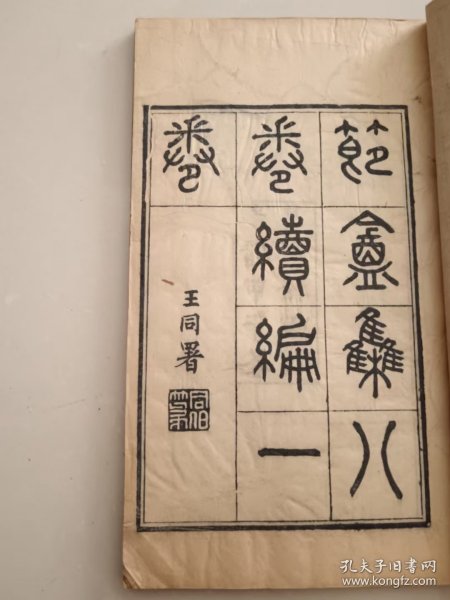 節盦集八
卷續編一
卷
王同署
同伯
孔夫子旧书网
www.kongfz.com